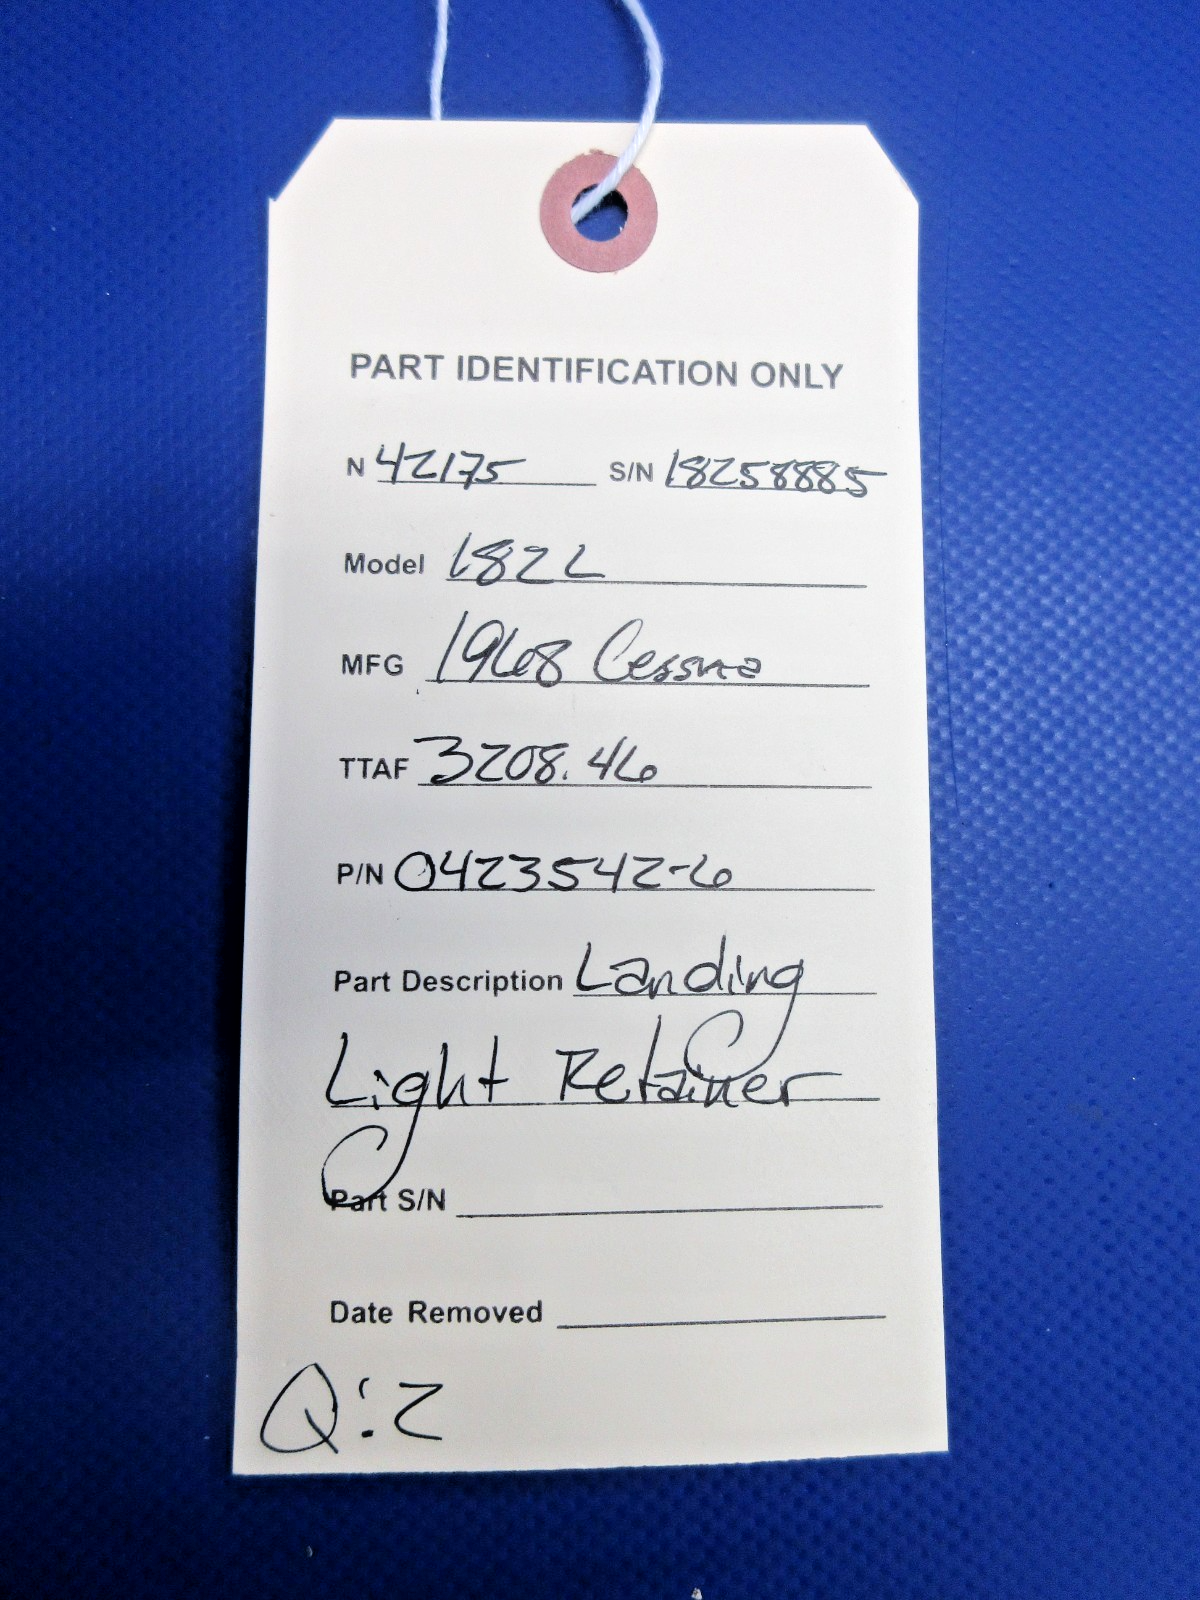 PART IDENTIFICATION ONLY
N 42175 S/N 18258885
Model 182L
MFG 1968 Cessna
TTAF 3208.46
P/N 0423542-6
Part Description Landing
Light Retainer
Part S/N
Date Removed
Q:2